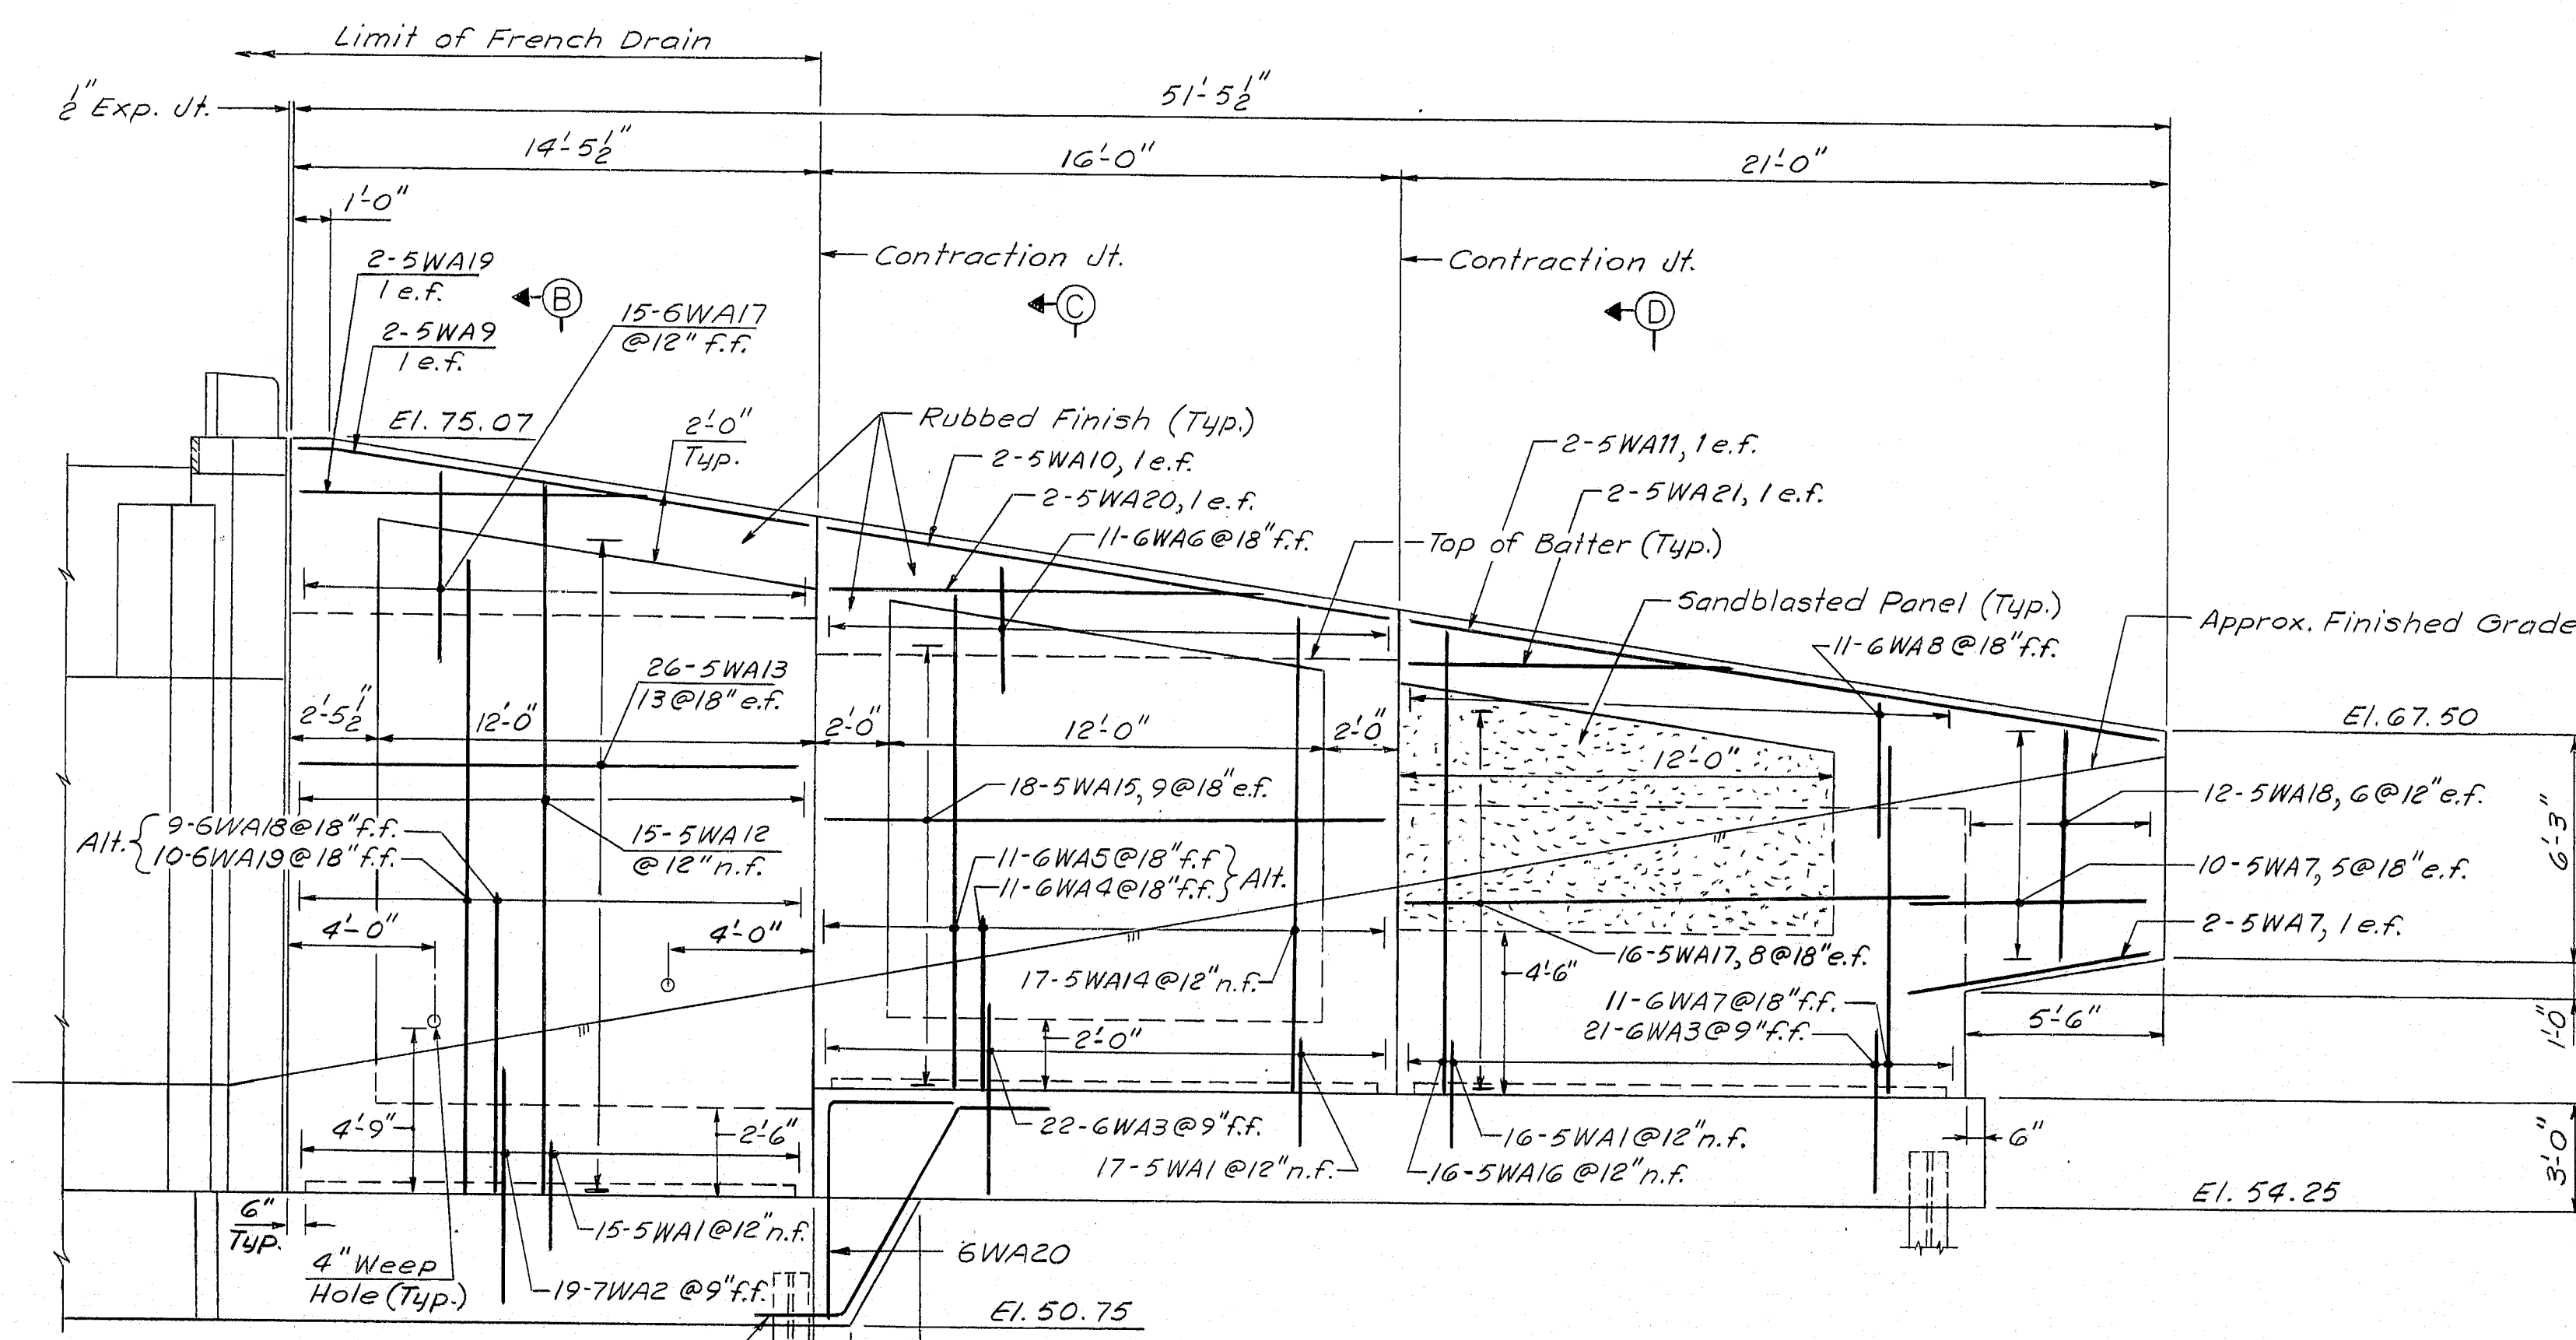 Limit of French Drain
1/2" Exp. Jt.
51'-5 1/2"
14'-5 1/2"
16'-0"
21'-0"
1'-0"
Contraction Jt.
Contraction Jt.
2-5WA19
1 e.f.
B
C
D
15-6WA17
@12" f.f.
2-5WA9
1 e.f.
El. 75.07
2'-0"
Typ.
Rubbed Finish (Typ.)
2-5WA10, 1 e.f.
2-5WA20, 1 e.f.
11-6WA6@18"f.f.
2-5WA11, 1 e.f.
2-5WA21, 1 e.f.
Top of Batter (Typ.)
Sandblasted Panel (Typ.)
Approx. Finished Grade
11-6WA8@18"f.f.
26-5WA13
13@18" e.f.
2'-5 1/2"
12'-0"
2'-0"
12'-0"
2'-0"
12'-0"
El. 67.50
18-5WA15, 9@18"e.f.
12-5WA18, 6@12"e.f.
6'-3"
Alt. { 9-6WA18@18"f.f.
10-6WA19@18"f.f.
15-5WA12
@12"n.f.
11-6WA5@18"f.f } Alt.
11-6WA4@18"f.f.
10-5WA7, 5@18"e.f.
4'-0"
4'-0"
2-5WA7, 1 e.f.
17-5WA14@12"n.f.
4'-6"
16-5WA17, 8@18"e.f.
11-6WA7@18"f.f.
21-6WA3@9"f.f.
5'-6"
1'-0"
2'-0"
4'-9"
2'-6"
22-6WA3@9"f.f.
17-5WA1@12"n.f.
16-5WA1@12"n.f.
16-5WA16@12"n.f.
6"
3'-0"
El. 54.25
6"
Typ.
15-5WA1@12"n.f.
4" Weep
Hole (Typ.)
19-7WA2 @9"f.f.
6WA20
El. 50.75